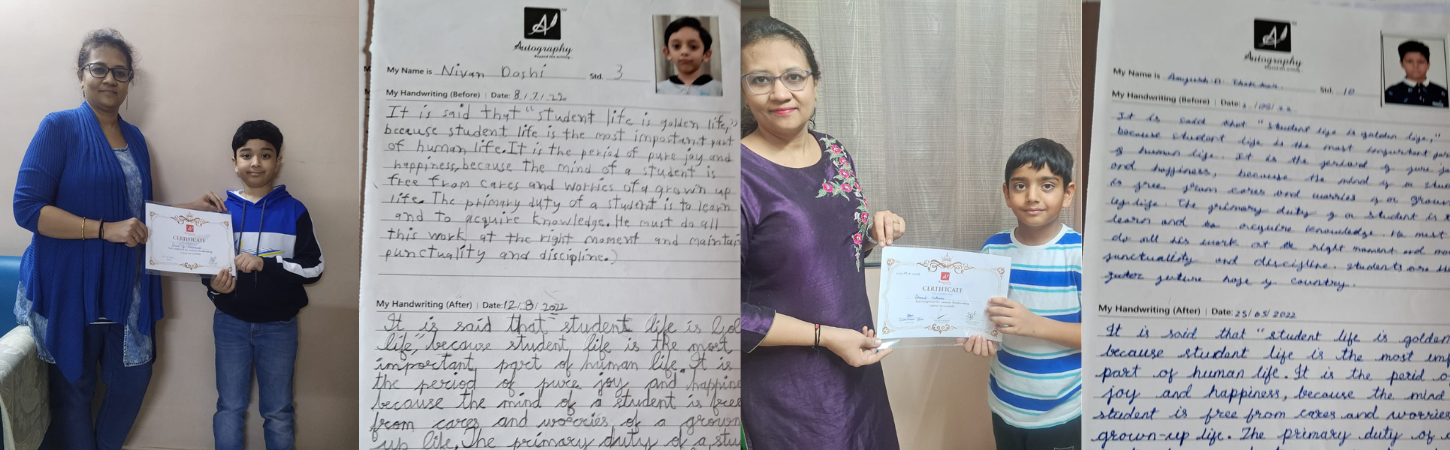 CERTIFICATE
Autography
My Name is Nivan Doshi Std. 3
My Handwriting (Before) | Date: 8/7/22
It is said that "student life is golden life,"
because student life is the most important part
of human life. It is the period of pure joy and
happiness, because the mind of a student is
free from cares and worries of a grown up
life. The primary duty of a student is to learn
and to acquire knowledge. He must do all
this work at the right moment and maintain
punctuality and discipline.
My Handwriting (After) | Date: 12/8/2022
It is said that "student life is Gol
life, because student life is the most
important part of human life. It is
the period of pure joy and happine
because the mind of a student is free
from cares and worries of a grown
up life. The primary duty of a stu
CERTIFICATE
Autography
My Name is Std. 10
My Handwriting (Before) | Date:
It is said that "student life is golden life,"
because student life is the most important
of human life. It is the period of pure
and happiness, because the mind of a
is free from cares and worries of a
up life. The primary duty of a student is
learn and to acquire knowledge. He must
do all his work at the right moment and
punctuality and discipline. Students are
future hope of country.
My Handwriting (After) | Date: 25/05/2022
It is said that "student life is golden
because student life is the most imp
part of human life. It is the perid o
joy and happiness, because the mind
student is free from cares and worries
grown-up life. The primary duty of